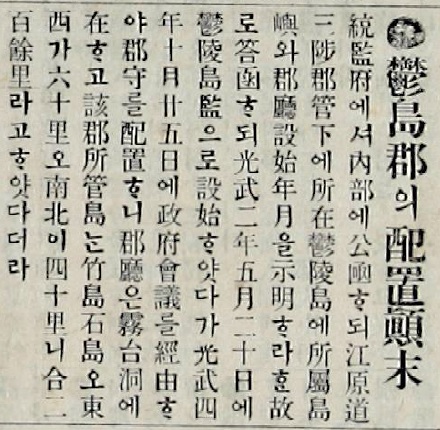 鬱島郡의 配置顚末
統監府에셔內部에公凾ᄒᆞ되江原道
三陟郡管下에所在鬱陵島에所屬島
嶼와郡廳設始年月을示明ᄒᆞ라ᄒᆞᆫ故
로答凾ᄒᆞ되光武二年五月二十日에
鬱陵島監으로設始ᄒᆞ얏다가光武四
年十月廿五日에政府會議를經由ᄒᆞ
야郡守를配置ᄒᆞ니郡廳은霧台洞에
在ᄒᆞ고該郡所管島ᄂᆞᆫ竹島石島오東
西가六十里오南北이四十里니合二
百餘里라고ᄒᆞ얏다더라